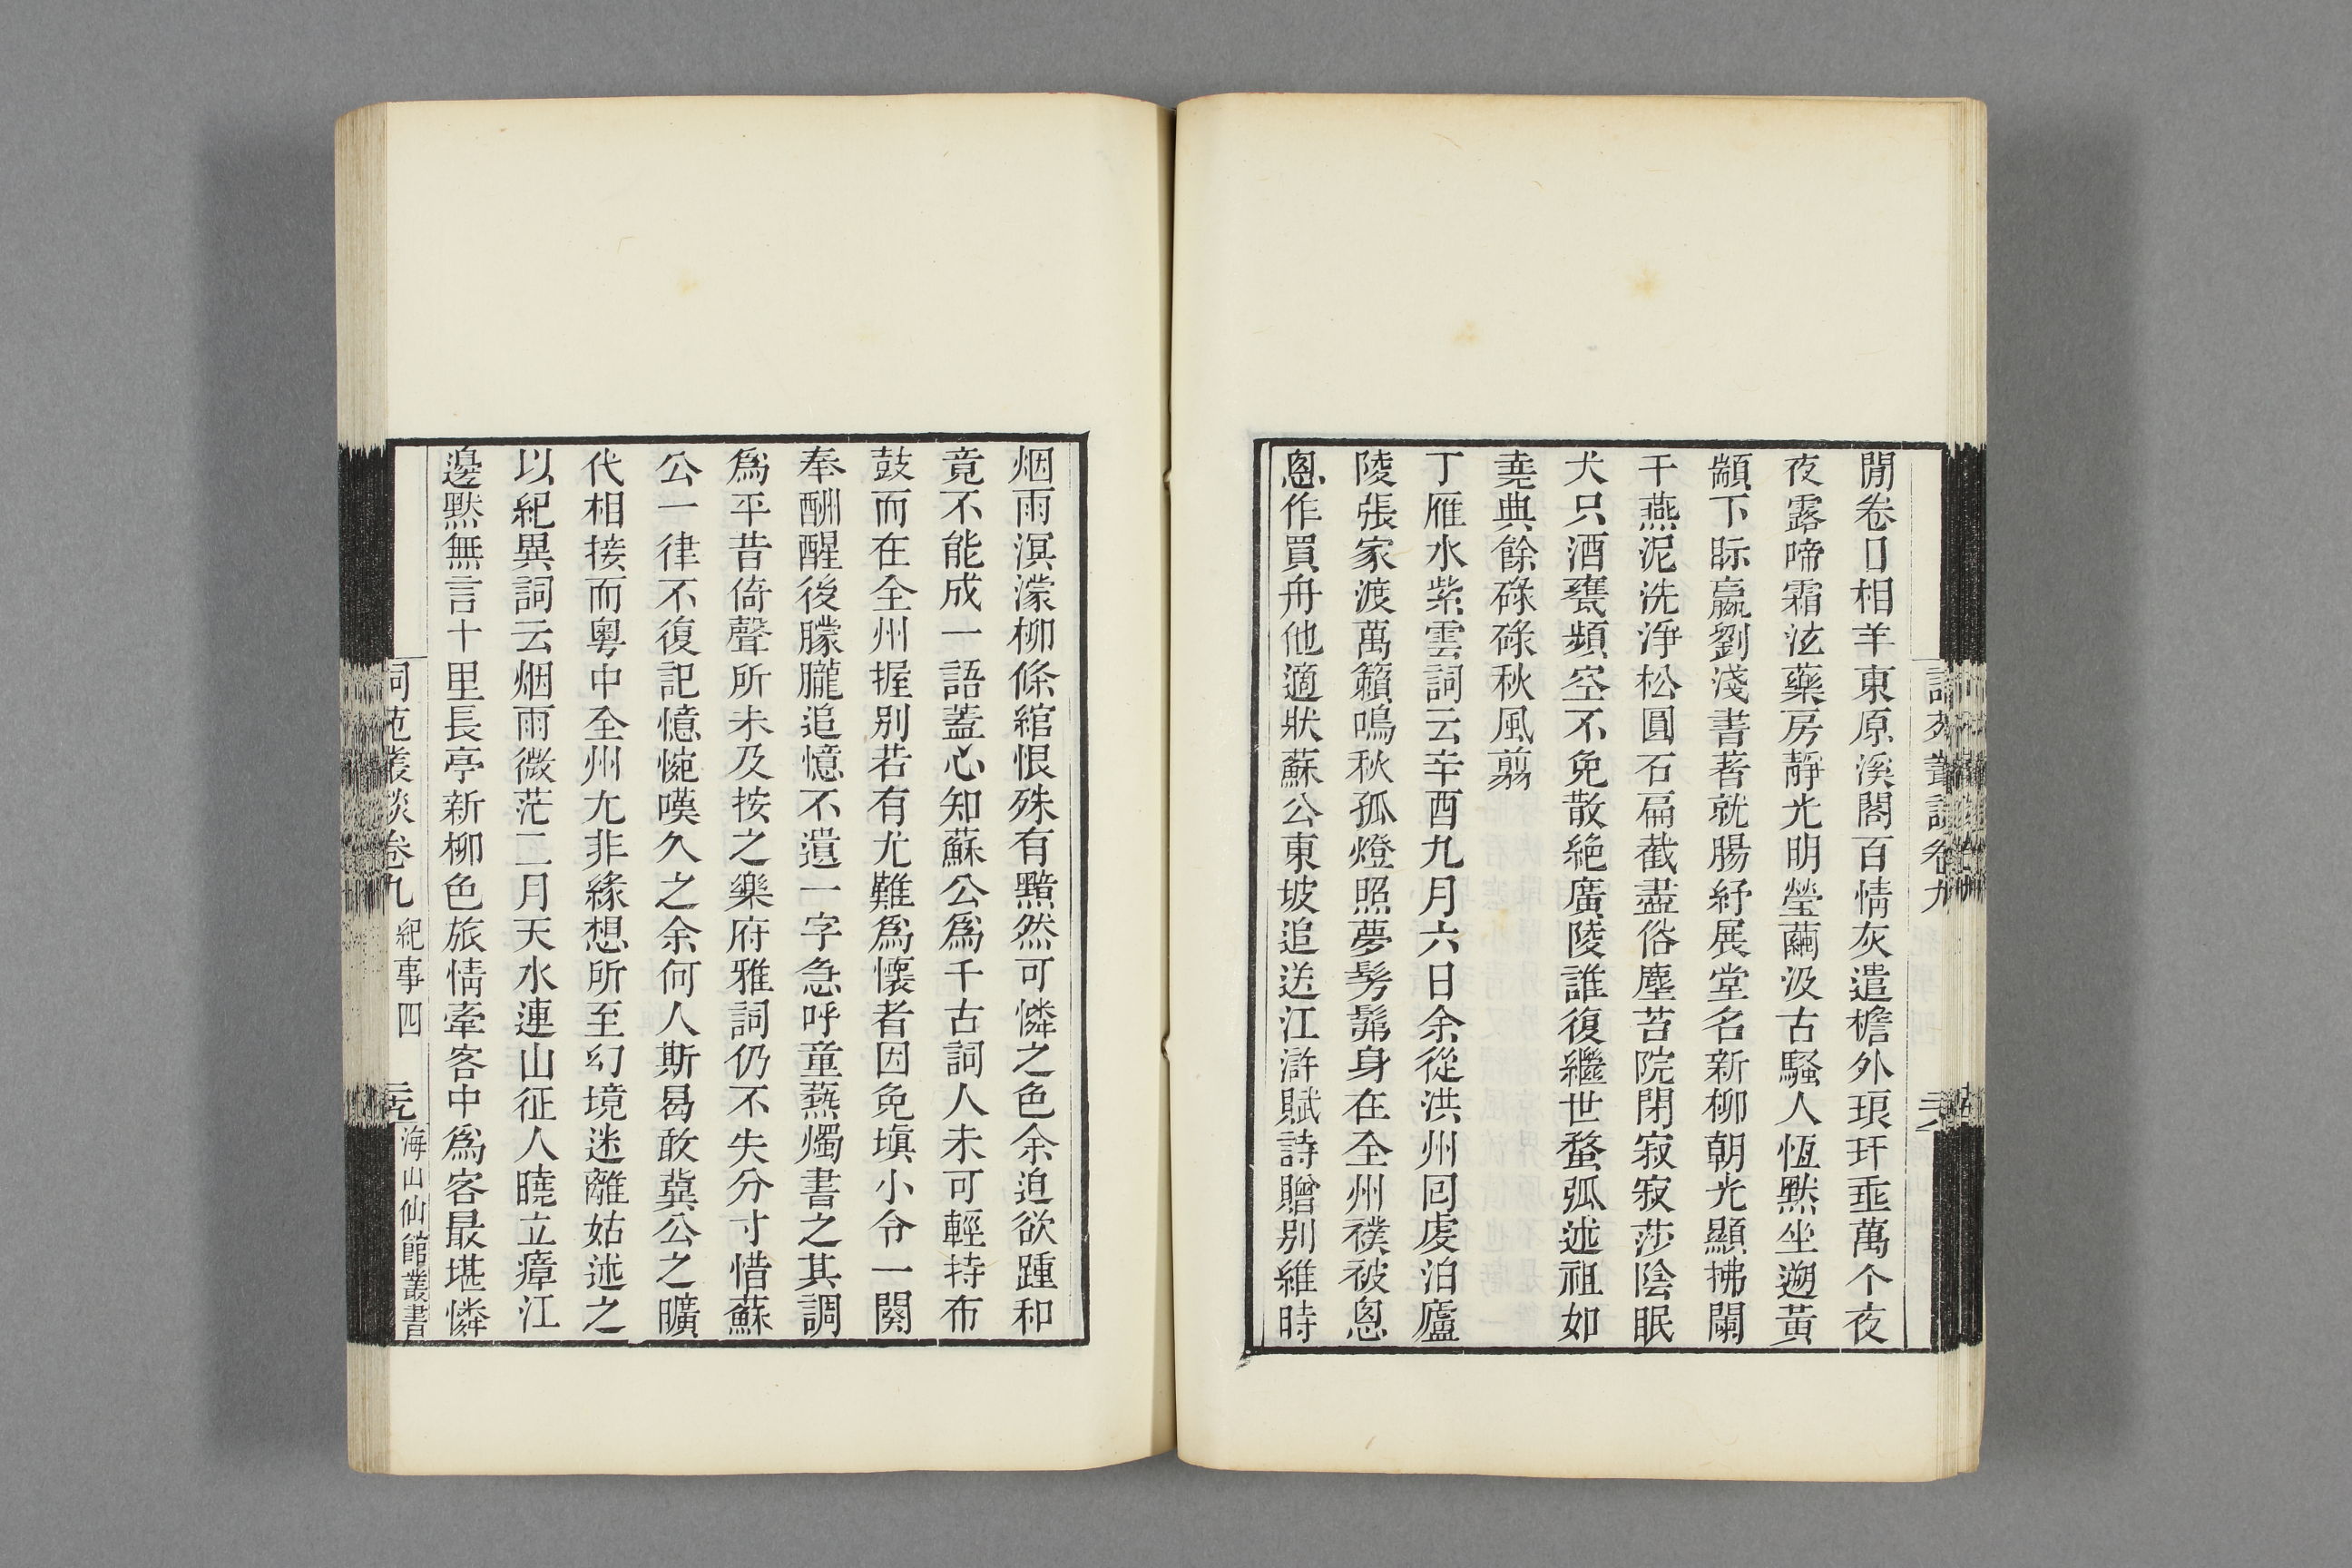 閒卷日相羊東原溪閣百情灰遣檐外琅玕垂萬个夜
夜露啼霜泫藥房靜光明瑩繭汲古騷人恆默坐遡黃
顓下眎嬴劉淺書著就腸紓展堂名新柳朝光顯拂闌
干燕泥洗淨松圓石扁截盡俗塵苔院閉寂寂莎陰眠
犬只酒甕頻空不免散絶廣陵誰復繼世螯弧述祖如
堯典餘碌碌秋風剪
丁雁水紫雲詞云辛酉九月六日余從洪州囘虔泊廬
陵張家渡萬籟鳴秋孤燈照夢髣髴身在全州襆被恩
恩作買舟他適狀蘇公東坡追送江滸賦詩贈別維時
烟雨溟濛柳條綰恨殊有黯然可憐之色余迫欲踵和
竟不能成一語蓋心知蘇公爲千古詞人未可輕持布
鼓而在全州握別若有尤難爲懷者因免塡小令一闋
奉酬醒後朦朧追憶不遺一字急呼童爇燭書之其調
爲平昔倚聲所未及按之樂府雅詞仍不失分寸惜蘇
公一律不復記憶惋嘆久之余何人斯曷敢冀公之曠
代相接而粵中全州尤非緣想所至幻境迷離姑述之
以紀異詞云烟雨微茫二月天水連山征人曉立瘴江
邊黙無言十里長亭新柳色旅情牽客中爲客最堪憐
詞苑叢談卷九 紀事四 海山仙館叢書